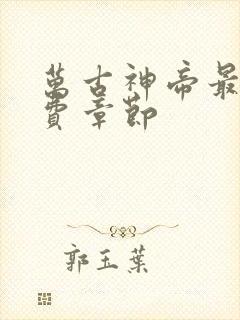 萬古神帝最
費章節
郭玉葉